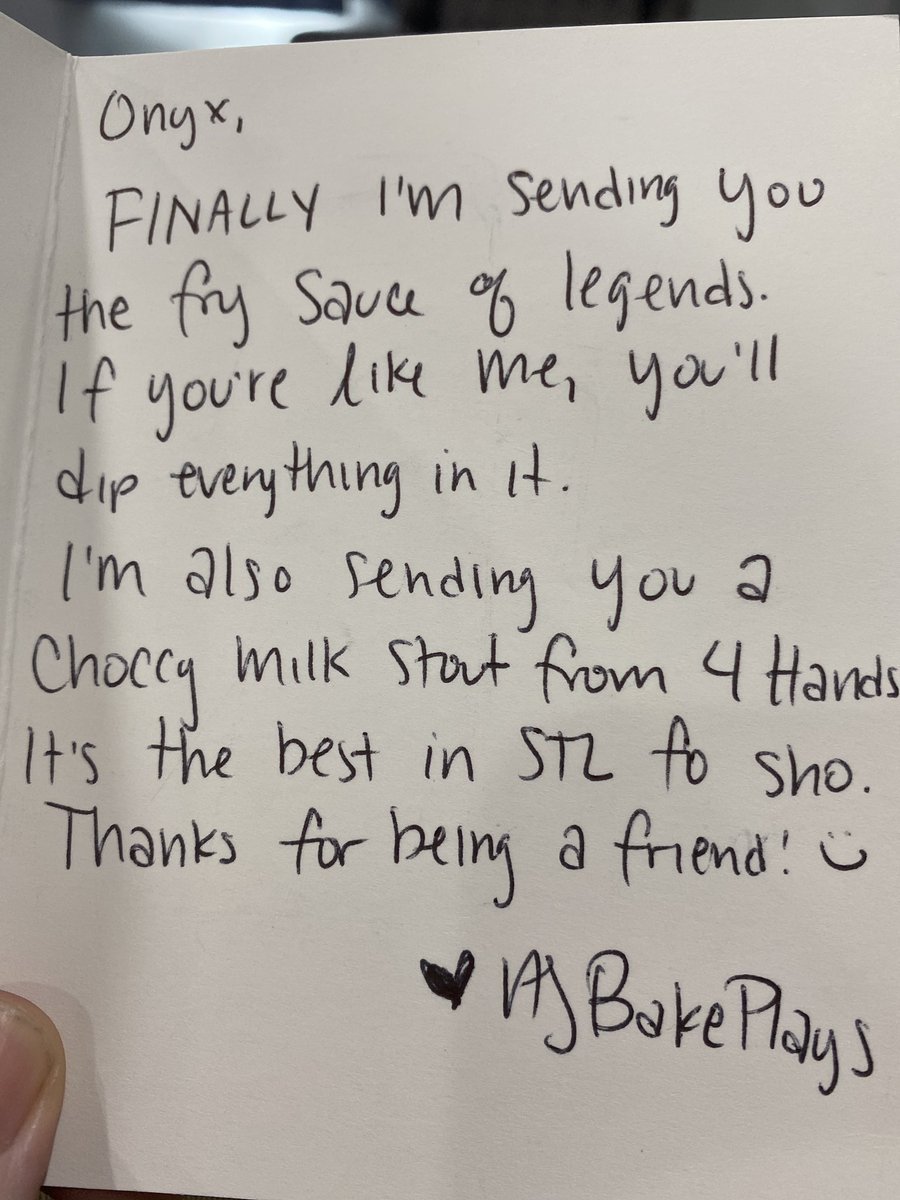 Onyx,
FINALLY I'm sending you
the fry sauce of legends.
If you're like me, you'll
dip everything in it.
I'm also sending you a
Choccy milk stout from 4 Hands
It's the best in STL fo sho.
Thanks for being a friend! :)
♥ AJBakePlays